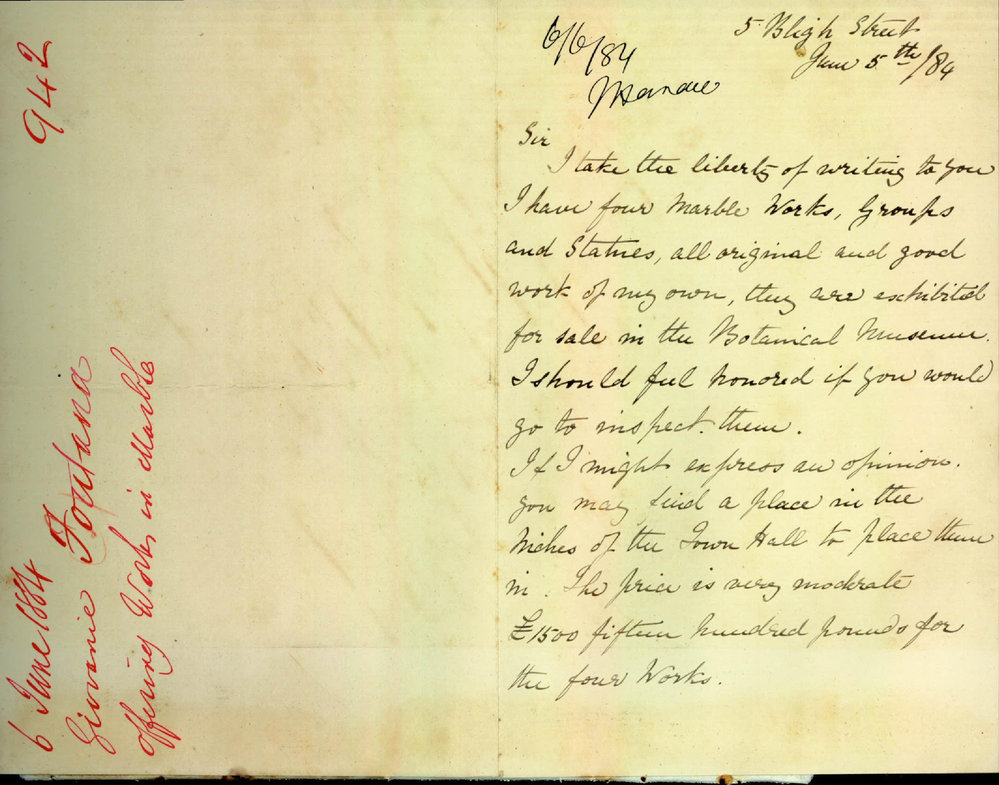 942
6 June 1884
Giovanie Fontana
offering Works in Marble
6/6/84
5 Bligh Street
June 5th/84
Sir
I take the liberty of writing to you
I have four Marble Works, Groups
and Statues, all original and good
work of my own, they are exhibited
for sale in the Botanical Museum.
I should feel honored if you would
go to inspect them.
If I might express an opinion.
you may find a place in the
Niches of the Town Hall to place them
in. The price is very moderate
£1500 fifteen hundred pounds for
the four Works.